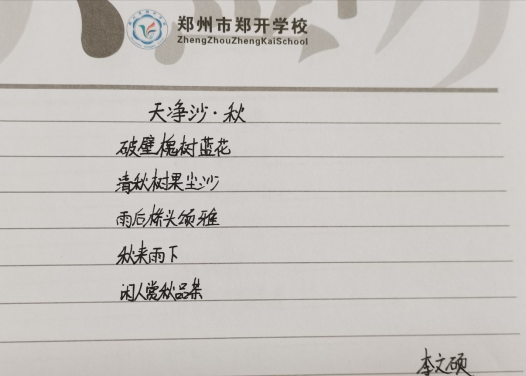 郑州市郑开学校
ZhengZhouZhengKaiSchool
天净沙·秋
破壁槐树蓝花
清秋树果尘沙
雨后桥头颂雅
秋来雨下
闲人赏秋品茶
李文硕